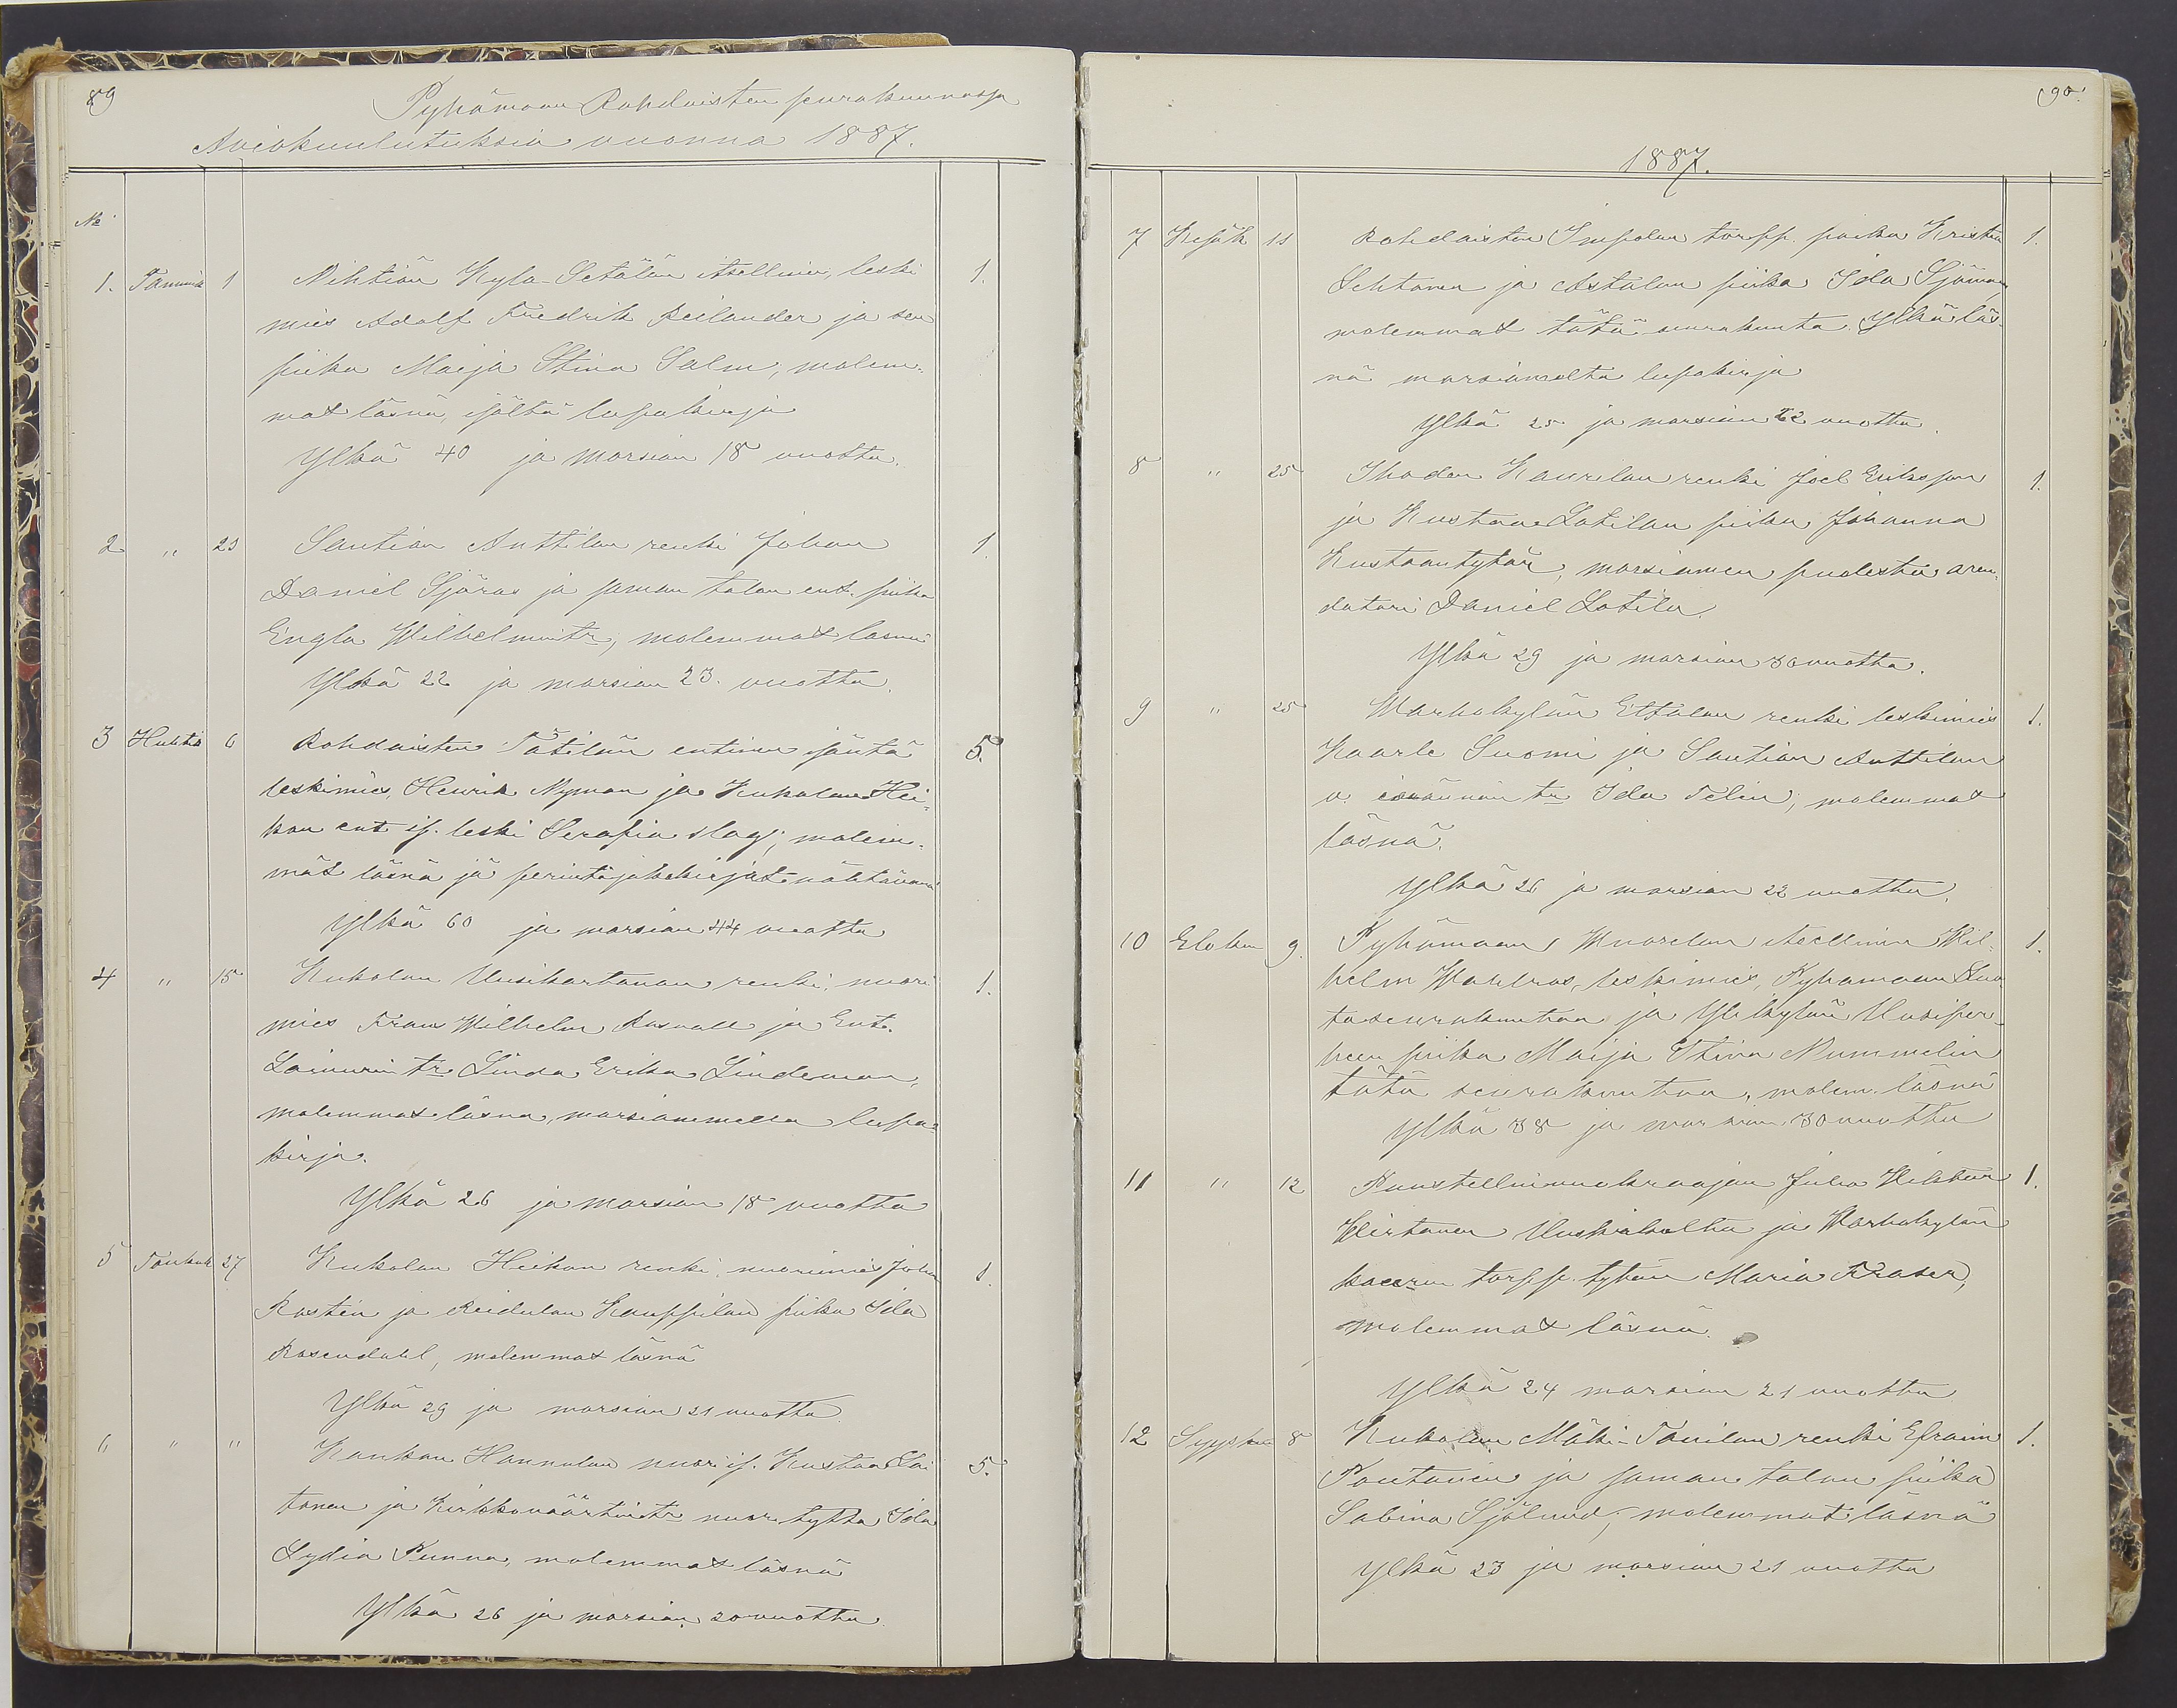 89
Pyhämaan Rohdaisten seurakunnassa
Aviokuulutuksia vuonna 1887.
No
1. Tammik 1 Nihtiän Kylä-Setälän itsellinen, leski 1.
mies Adolf Fredrik Reilander ja sen
piika Maija Stina Salm, molem-
mat läsnä, isältä lupakirja
Ylkä 40 ja morsian 18 vuotta.
2 " 23 Santian Anttilan renki Johan 1.
Daniel Sjöros ja saman talon ent. piika
Engla Wilhelmintr, molemmat läsnä
Ylkä 22 ja morsian 23. vuotta.
3 Huhtik 6 Rohdaisten Tätilän entinen isäntä 5.
leskimies, Henrik Nyman ja Kukolan Hei-
kan ent is. leski Serafia Slag; molem-
mat läsnä ja perintöjakokirjat nähtävänä
Ylkä 60 ja morsian 44 vuotta
4 " 15 Kukolan Uusikartanon renki, nuori 1.
mies Frans Wilhelm Rosvall ja Ent.
tr Linda Erika Lindeman,
molemmat läsnä, morsiammella lupa-
kirja.
Ylkä 26 ja morsian 18 vuotta
5 Toukok 27 Kukolan Heikan renki, nuorimies Johan 1.
Rostén ja Reidulan Kauppilan piika Ida
Rosendahl, molemmat läsnä
Ylkä 29 ja morsian 21 vuotta
6 " " Kaukan Hannulan nuor is. Kustaa Lai 5.
tonen ja Kirkkoväärtintr nuor. tyttö Ida
Lydia Punna, molemmat läsnä
Ylkä 26 ja morsian 20 vuotta.
90.
1887.
7 Kesäk 11 Rohdaisten Simpolan torpp. poika Kristian 1.
Lehtonen ja Astalan piika Ida Sjöman
molemmat tätä seurakunta. Ylkä läs-
nä morsiamelta lupakirja
Ylkä 25 ja morsian 22 vuotta.
8 " 25 Ihoden Kaurilan renki Joel Eriksson 1.
ja Kustaa Lotilan piika Johanna
Kustaantytär, morsiamen puolesta aren-
datori Daniel Lotila.
Ylkä 29 ja morsian 30 vuotta.
9 " 25 Warhokylän Ettalan renki leskimies 1.
Kaarle Suomi ja Santian Anttilan
v. isännän tr Ida Felin; molemmat
läsnä.
Ylkä 26 ja morsian 22 vuotta.
10 Elokuu 9. Pyhämaan Wuorelan itsellinen Wil- 1.
helm Wahlros, leskimies, Pyhämaan Luo
toseurakuntaa ja Ylikylän Uusiper-
heen piika Maija Stina Nummelin
tätä seurakuntaa, molem. läsnä
Ylkä 38 ja morsian 30 vuotta
11 " 12 Puustellinvuokraajan Juho Wihtori 1.
Wirtanen ja Warhokylän
torpp. tytär Maria Fraser,
molemmat läsnä.
Ylkä 24 morsian 21 vuotta
12 Syysku 8 Kukolan Mäki-Tanilan renki Efraim 1.
Pontanen ja saman talon piika
Sabina Sjölund; molemmat läsnä
Ylkä 23 ja morsian 21 vuotta